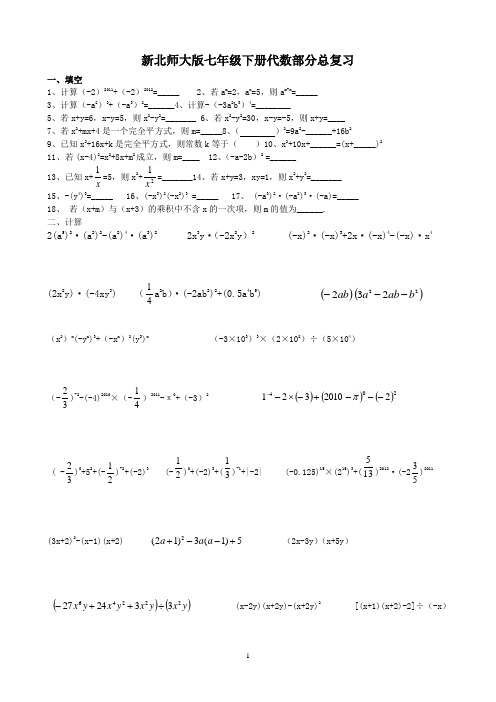 新北师大版七年级下册代数部分总复习
一、填空
1、计算(-2)²⁰¹¹+(-2)²⁰¹²=_____ 2、若aᵐ=2，aⁿ=5，则aᵐ⁺ⁿ=_____
3、计算(-a²)³+(-a³)²=______4、计算-(-3a²b³)⁴=________
5、若x+y=6，x-y=5，则x²-y²=_______ 6、若x²-y²=30，x-y=-5，则x+y=____
7、若x²+mx+4是一个完全平方式，则m=_____8、（ ）²=9a²-______+16b²
9、已知x²+16x+k是完全平方式，则常数k等于（ ）10、x²+10x+______=(x+_____)²
11、若(x-4)²=x²+8x+m²成立，则m=____ 12、(-a-2b)²=______
13、已知x+1/x=5，则x²+1/x²=_______14、若x+y=3，xy=1，则x²+y²=_______
15、-(y³)³=_____ 16、(-x³)²(-x²)³ =_____ 17、 (-a³)²·(-a²)³·(-a)=_____
18、 若（x+m）与（x+3）的乘积中不含x的一次项，则m的值为______.
二、计算
2(a⁵)²·(a²)²-(a²)⁴·(a³)² 2x³y·(-2x²y)² (-x)²·(-x)³+2x·(-x)⁴-(-x)·x⁴
(2x²y)·(-4xy³) (1/4 a²b)·(-2ab²)²+(0.5a⁴b⁵) (-2ab)(3a²-2ab-b²)
(x²)ⁿ(-yⁿ)³+(-xⁿ)²(y³)ⁿ (-3×10³)³×(2×10⁸)÷(5×10⁴)
(-2/3)⁻²-(-4)²⁰¹⁰×(-1/4)²⁰¹¹-π⁰+(-3)² 1⁻⁴-2×(-3)+(2010-π)⁰-(-2)²
( -2/3)⁰+5²+(-1/2)⁻²+(-2)³ (-1/2)⁰+(-2)³+(1/3)⁻¹+|-2| (-0.125)¹⁵×(2¹⁵)³+(5/13)²⁰¹²·(-2 3/5)²⁰¹¹
(3x+2)²-(x-1)(x+2) (2a+1)²-3a(a-1)+5 (2x-3y)(x+5y)
(-27x⁶y+24x⁴y²+3x²y)÷(3x²y) (x-2y)(x+2y)-(x+2y)² [(x+1)(x+2)-2]÷(-x)
1